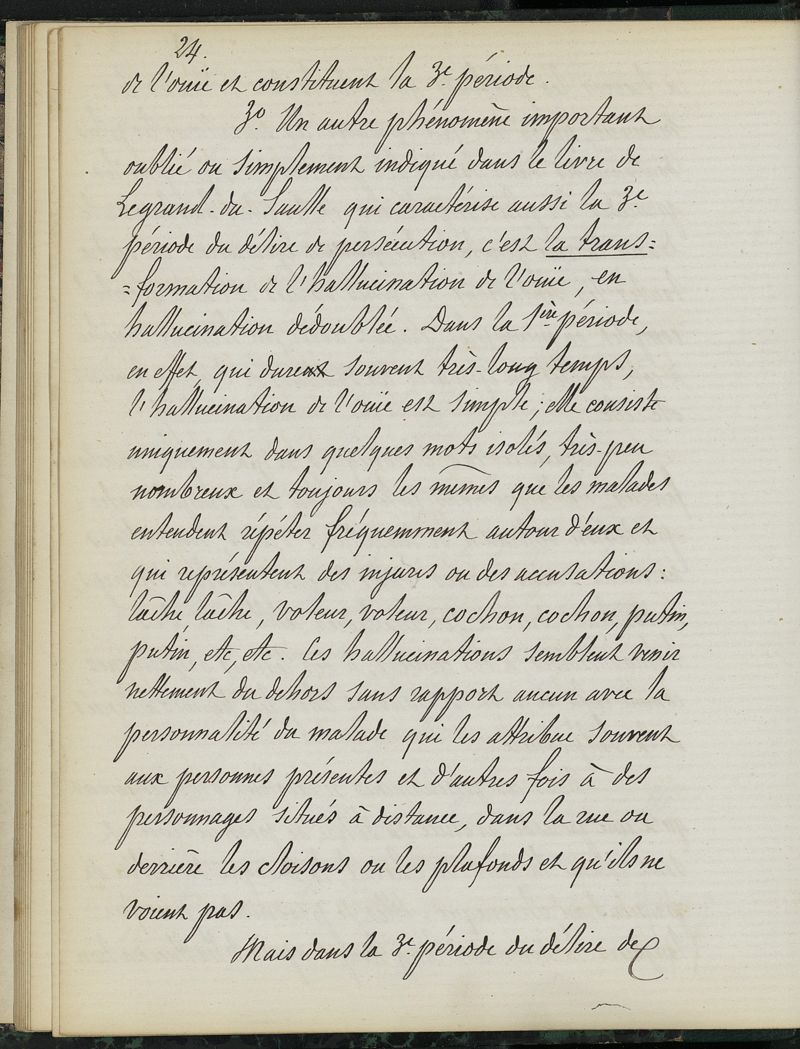 24.
de l'ouïe et constituent la 3e période.
3o. Un autre phénomène important
oublié ou simplement indiqué dans le livre de
Legrand-du-Saulle qui caractérise aussi la 3e
période du délire de persécution, c'est la trans=
=formation de l'hallucination de l'ouïe, en
hallucination dédoublée. Dans la 1ère période,
en effet, qui dure souvent très-long temps,
l'hallucination de l'ouïe est simple; elle consiste
uniquement dans quelques mots isolés, très-peu
nombreux et toujours les mêmes que les malades
entendent répéter fréquemment autour d'eux et
qui représentent des injures ou des accusations:
lâche, lâche, voleur, voleur, cochon, cochon, putin,
putin, etc, etc. Ces hallucinations semblent venir
nettement du dehors sans rapport aucun avec la
personnalité du malade qui les attribue souvent
aux personnes présentes et d'autres fois à des
personnages situés à distance, dans la rue ou
derrière les cloisons ou les plafonds et qu'ils ne
voient pas.
Mais dans la 3e période du délire de